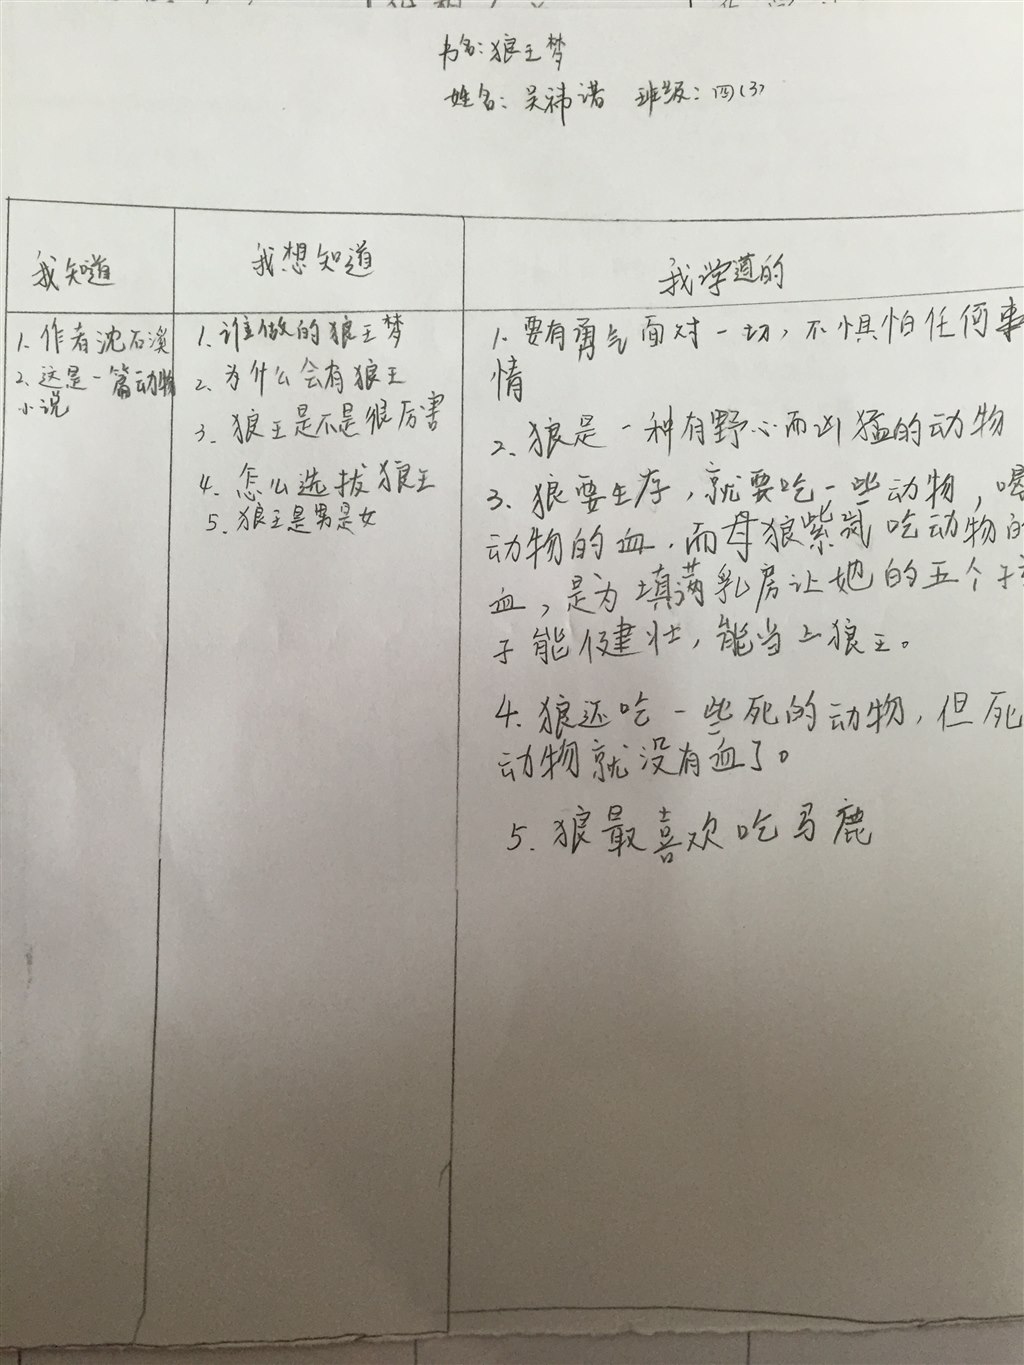 书名:狼王梦
姓名:吴祎诺 班级:四(3)
我知道
1、作者沈石溪
2、这是一篇动物
小说
我想知道
1、谁做的狼王梦
2、为什么会有狼王
3、狼王是不是很厉害
4、怎么选拔狼王
5、狼王是男是女
我学道的
1、要有勇气面对一切,不惧怕任何事
情
2、狼是一种有野心而凶猛的动物
3、狼要生存,就要吃一些动物,喝
动物的血,而母狼紫岚吃动物的
血,是为填满乳房让她的五个
子能健壮,能当上狼王。
4、狼还吃一些死的动物,但死
动物就没有血了。
5、狼最喜欢吃马鹿